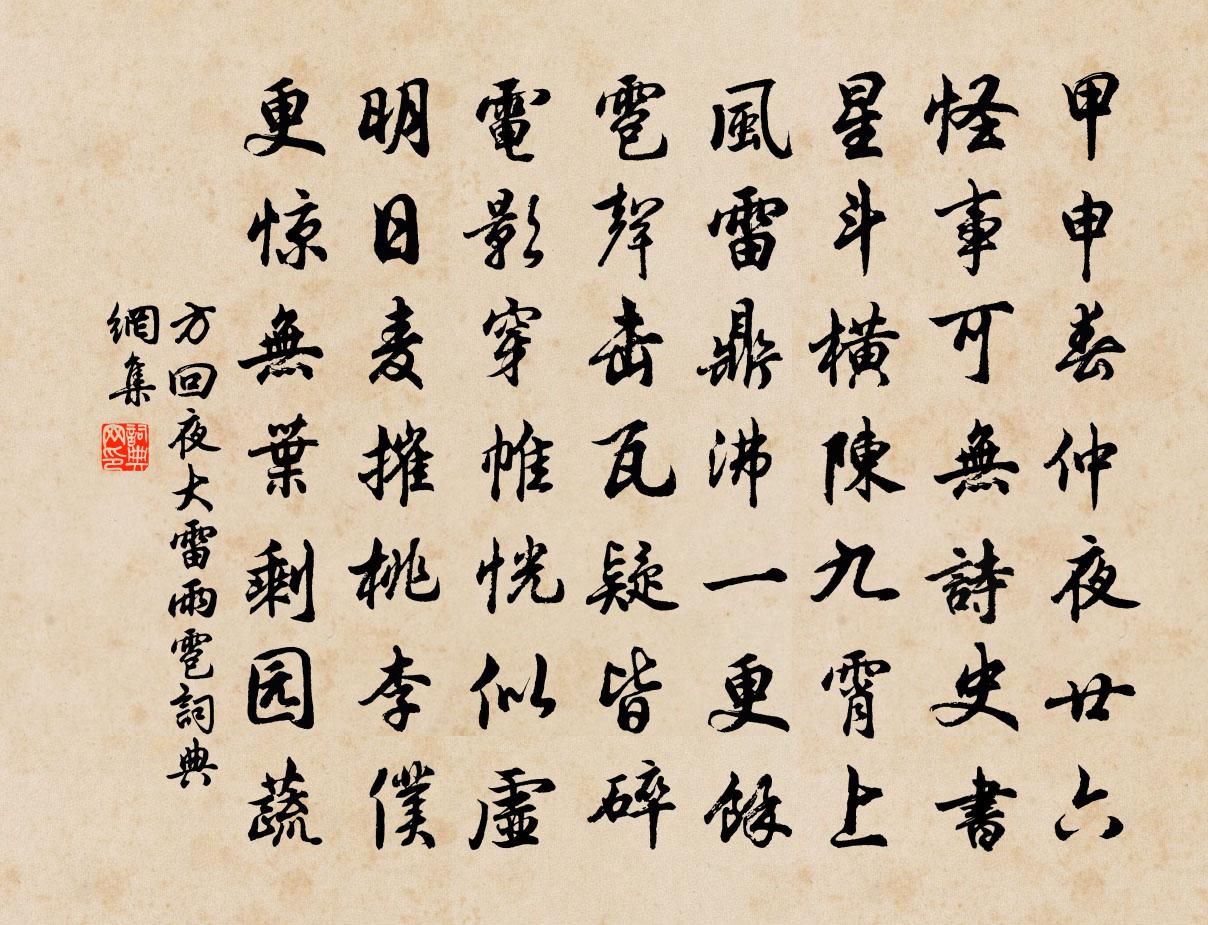 甲申春仲夜廿六
怪事可無詩史書
星斗橫陳九霄上
風雷鼎沸一更餘
雹聲击瓦疑皆碎
電影穿帷恍似虛
明日麦摧桃李僕
更惊無葉剩园蔬
方回夜大雷雨雹詞典
網集
詞典网印